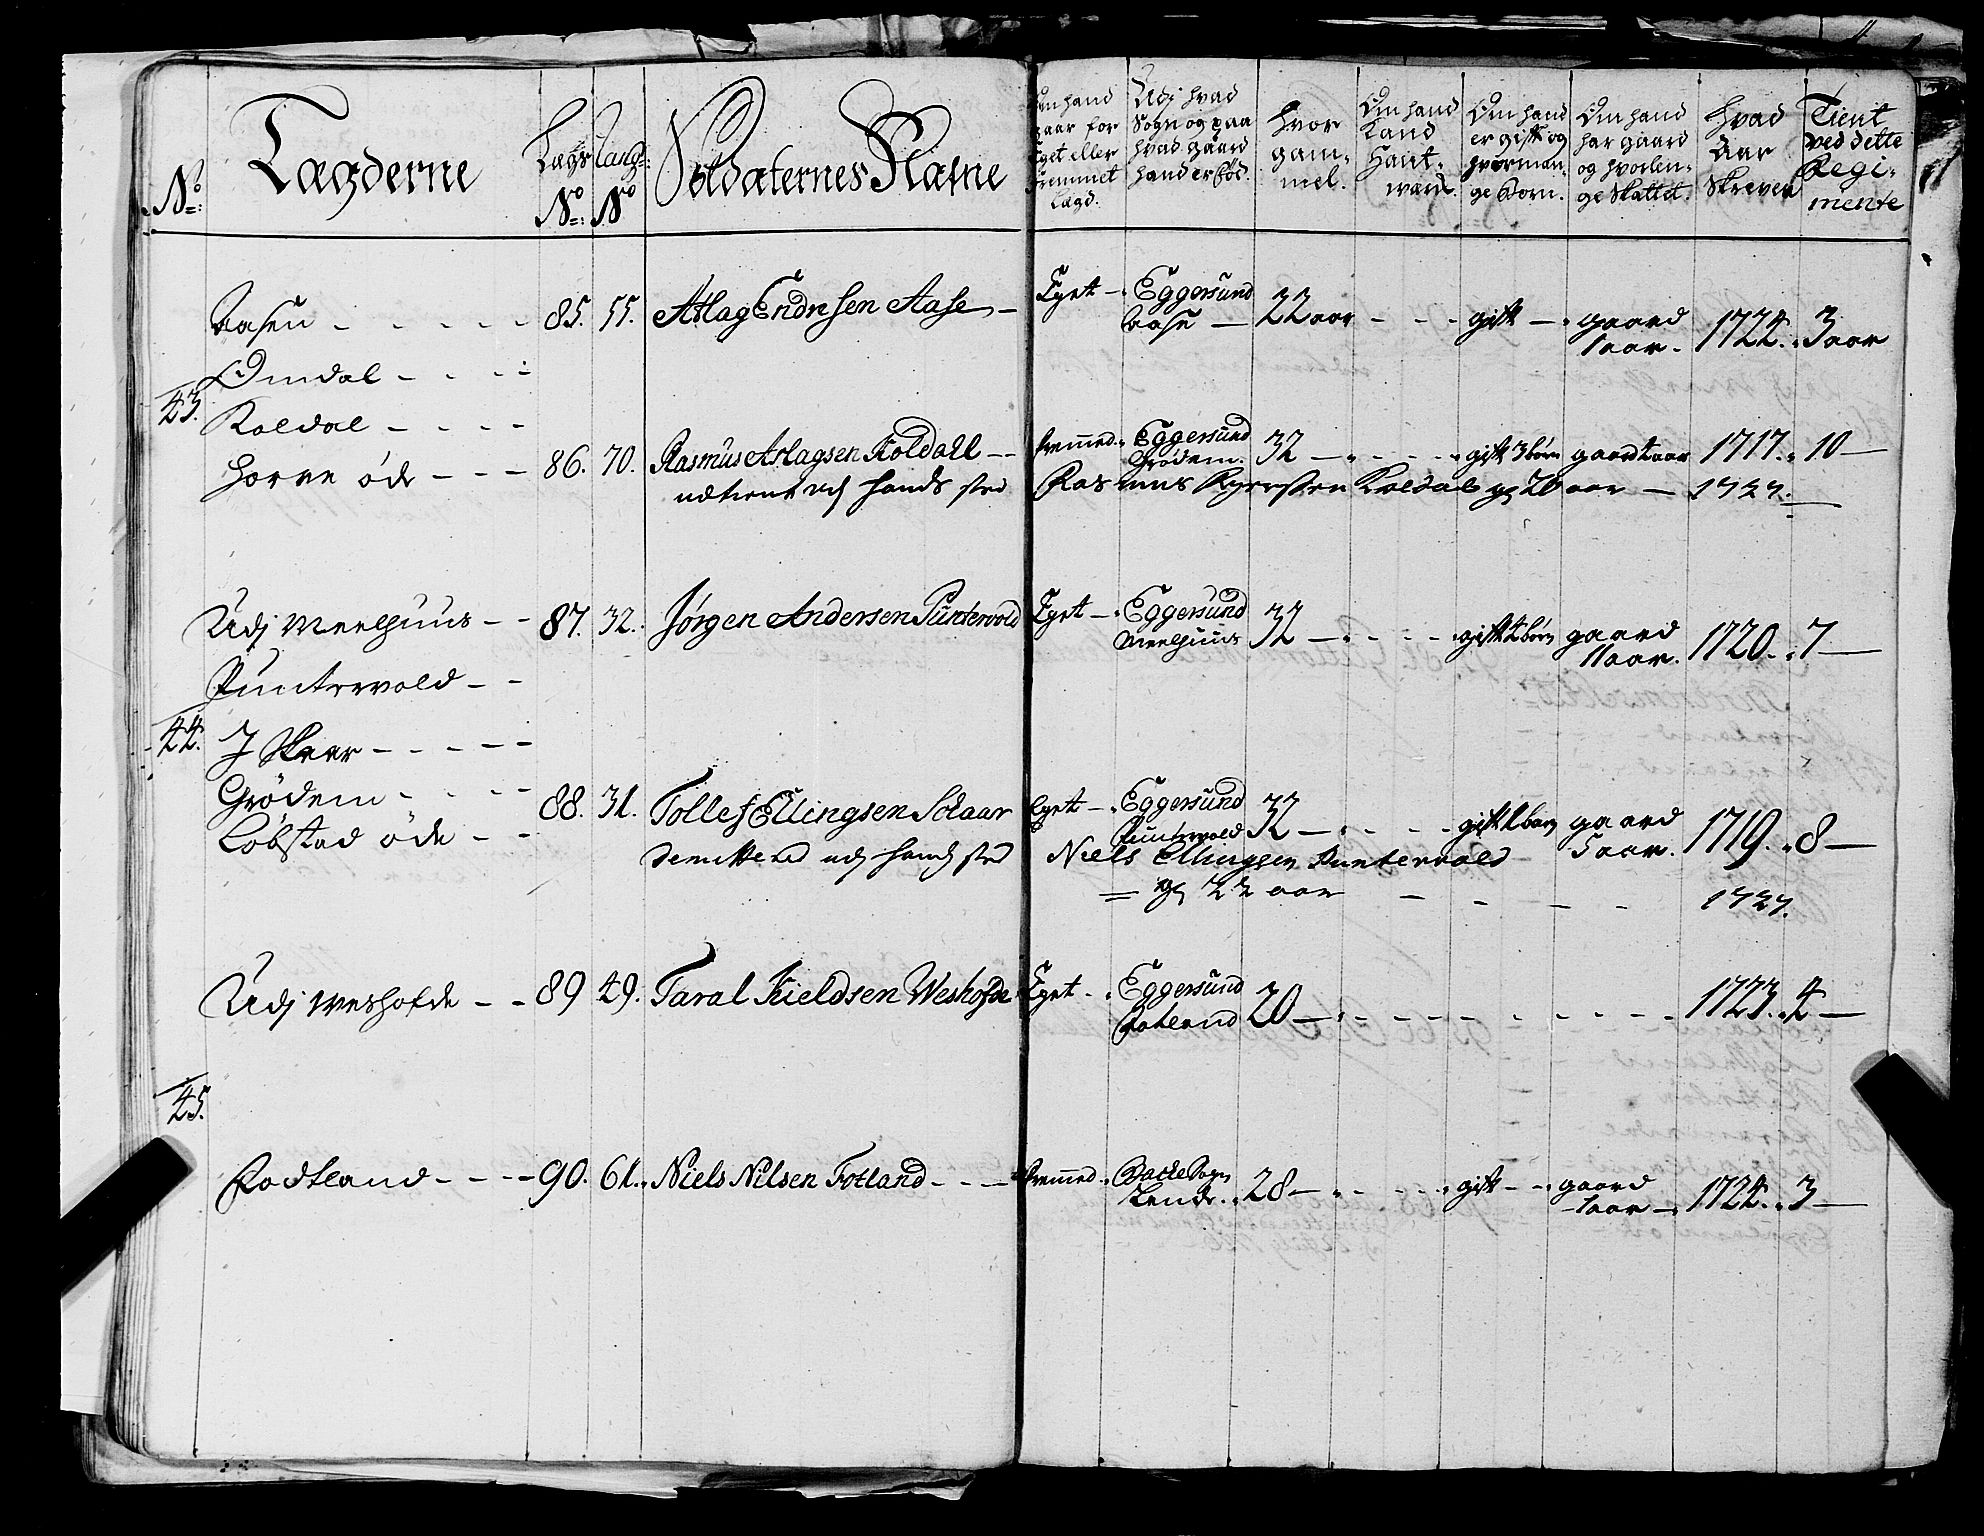 No: Lægderne Lægs No: Rang: No Soldaternes Nafne
Om hand gaar for Eget eller fremmet Lægd.
Udj hvad Sogn og paa hvad gaard hand er fød.
hvor gam- mel.
Om hand kand Hant- wærck.
Om hand er gift og hvor man- ge Børn.
Om hand har gaard og hvorlen- ge Skattet.
hvad Aar Skreven
Tient ved dette Regi- mente
Aasen - - - - - 85. 55. Atlag Endresen Aase - Eget - Eggersund Aase - 22 aar - - - gift - gaard 1 aar. 1724. 3 aar
Omdal - - - -
43.
Koldal - - - -
Horve øde - - - 86. 70. Rasmus Atlagsen Koldall - - fremed. Eggersund Grødem. 32 - - - - gift 3 børn gaard 2 aar 1717. 10 -
udtient udj hands sted Rasmus Koldal gl 20 aar - 1727.
Udj Meelhuus - - 87. 32. Jørgen Andersen Puntervold Eget - Eggersund Meelhuus 32 - - - - gift 2 børn gaard 11 aar. 1720. 7 -
Puntervold - -
44.
J Skaar - - - - -
Grødem - - - -
Løbstad øde - - 88. 31. Tollef Ellingsen Schaar Eget - Eggersund Puntervold 32 - - - - gift 1 barn gaard 5 aar. 1719. 8 -
udj hands sted Niels Ellingsen Puntervold
= gl 22 aar - - - - 1727.
Udj Weshofde - - 89 49. Taral Kieldsen Weshofde Eget - Eggersund 20 - - - - - - - - 1723. 4 -
45.
Fodtland - - - - 90. 61. Niels Nilsen Fotland - - - fremmed. Backe Sogn 28 - - - - gift - - gaard 1 aar - 1724. 3 -